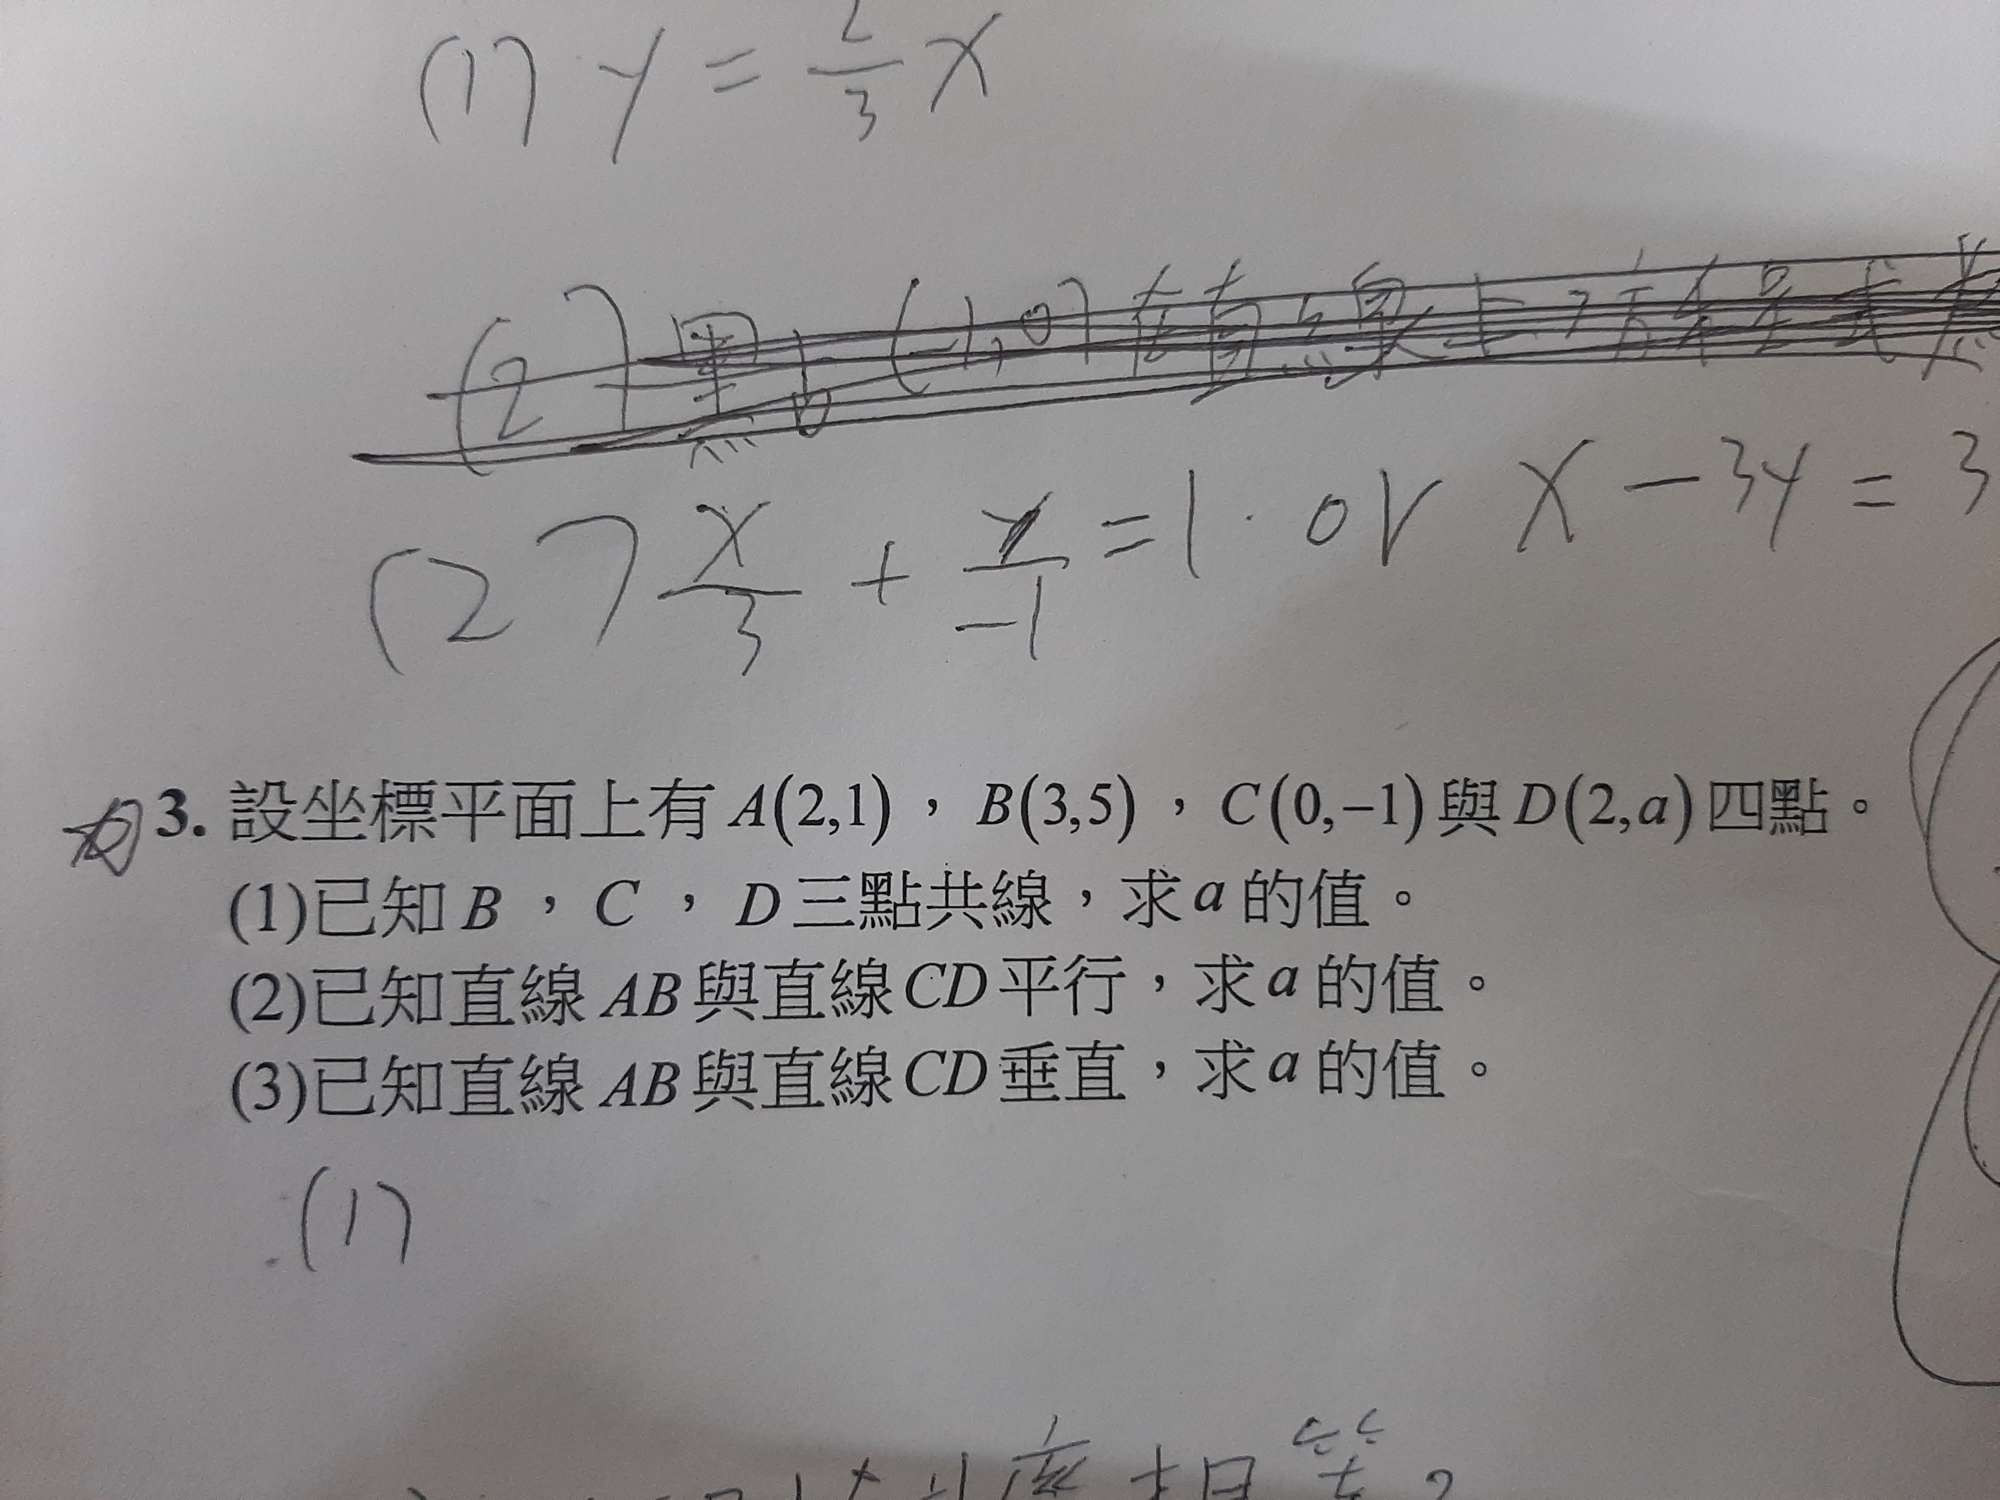 (1) y = 2/3 x
(2) (-1,0)
(2) x/3 + y/-1 = 1. or x - 3y = 3
3. 設坐標平面上有 A(2,1)， B(3,5) ， C(0,−1) 與 D(2,a) 四點。
(1)已知 B ， C ， D 三點共線，求 a 的值。
(2)已知直線 AB 與直線 CD 平行，求 a 的值。
(3)已知直線 AB 與直線 CD 垂直，求 a 的值。
(1)
相等。